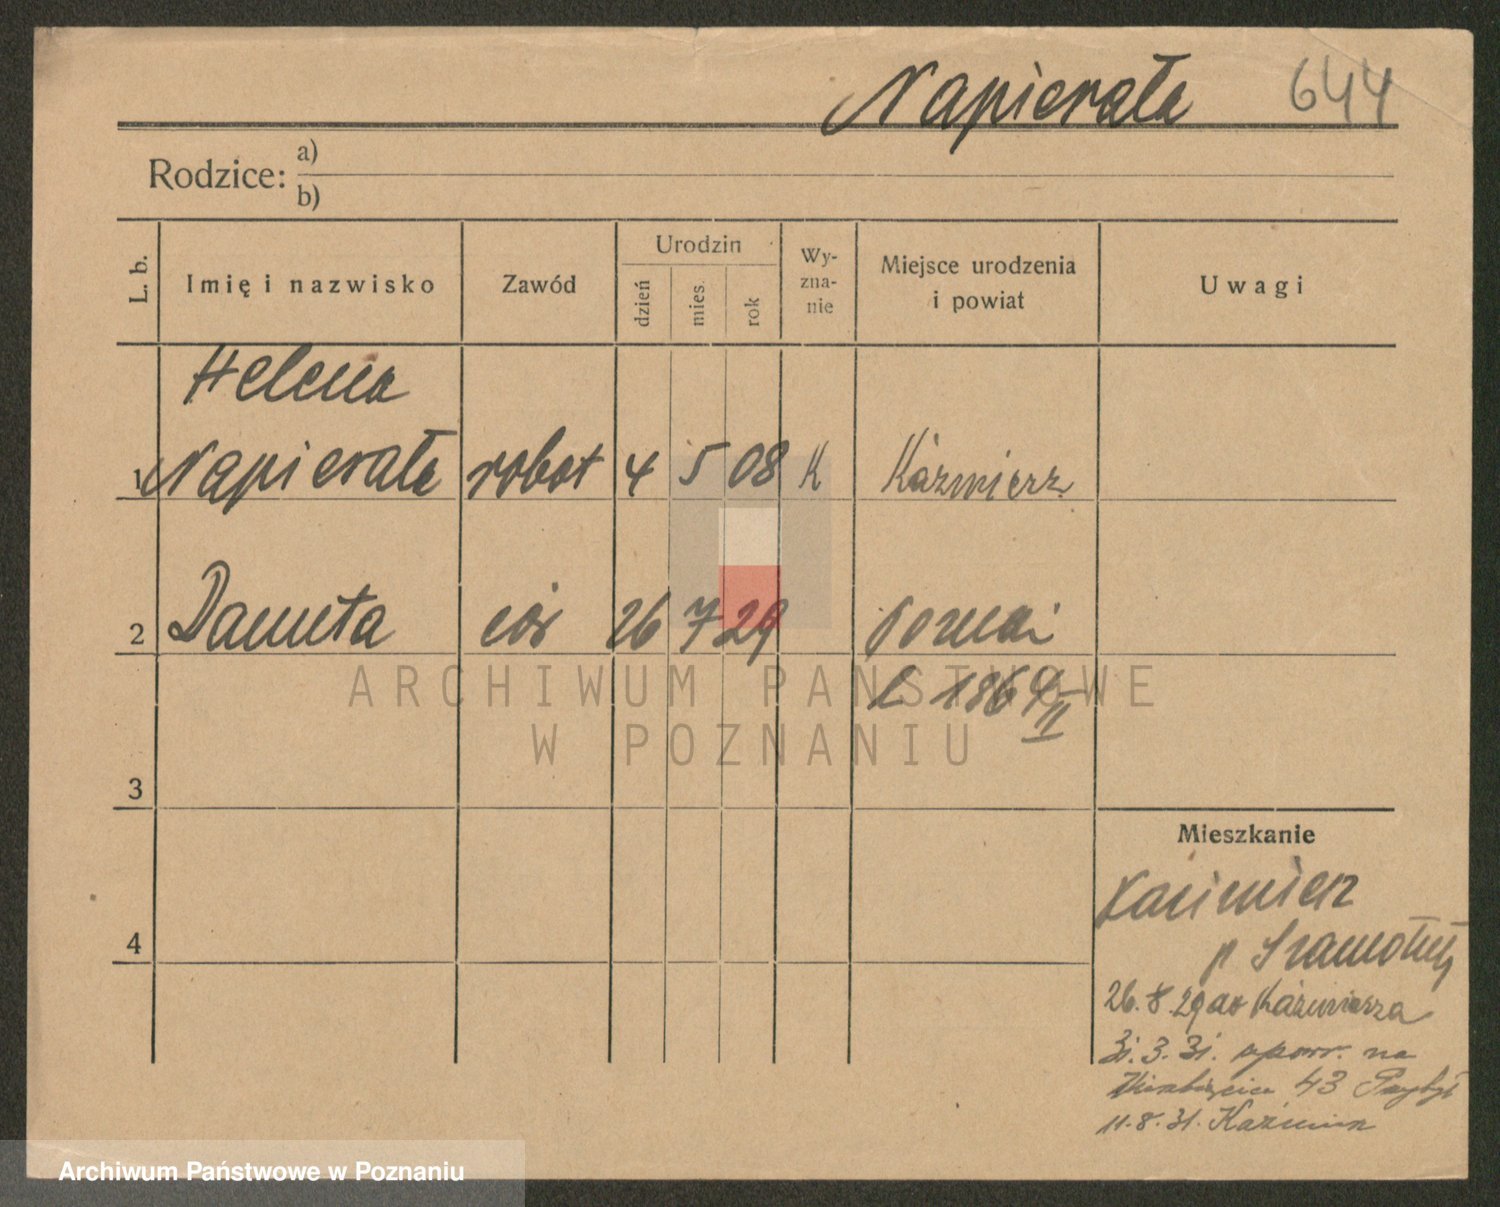 Napierała 644
Rodzice: a)
b)
L. b. Imię i nazwisko Zawód Urodzin dzień mies. rok Wy-zna-nie Miejsce urodzenia i powiat Uwagi
Helena
1 Napierała robot 4 5 08 K Kaźmierz
2 Danuta cór 26 7 29 Poznań
L 1864/II
3
Mieszkanie
4
Kaźmierz
p Szamotuły
26.8.29 do Kaźmierza
31.3.31. na
43
11.8.31. Kaźmierz
ARCHIWUM PAŃSTWOWE
W POZNANIU
Archiwum Państwowe w Poznaniu